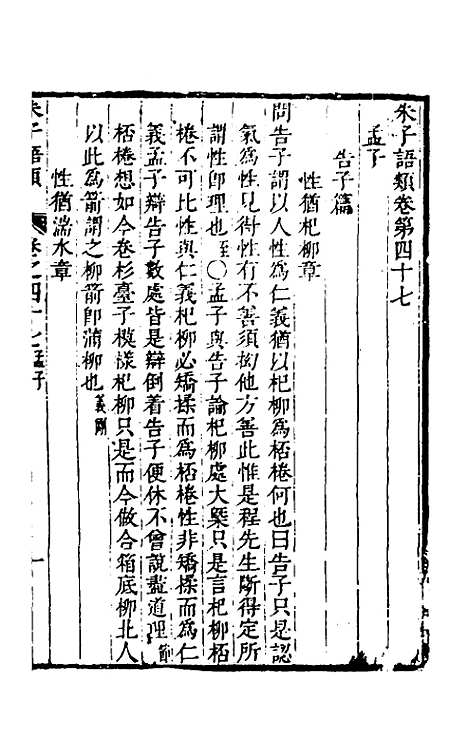 朱子語類卷第四十七
孟子
告子篇
性猶杞柳章
問告子謂以人性為仁義猶以杞柳為桮棬何也曰告子只是認
氣為性見得性有不善須拗他方善此惟是程先生斷得定所
謂性即理也 至 ○孟子與告子論杞柳處大槩只是言杞柳桮
棬不可比性與仁義杞柳必矯揉而為桮棬性非矯揉而為仁
義孟子辯告子數處皆是辯倒着告子便休不曾說盡道理 節
桮棬想如今卷杉臺子模樣杞柳只是而今做合箱底柳北人
以此為箭謂之柳箭即蒲柳也 義剛
性猶湍水章
朱子語類 卷之四十七 孟子 一